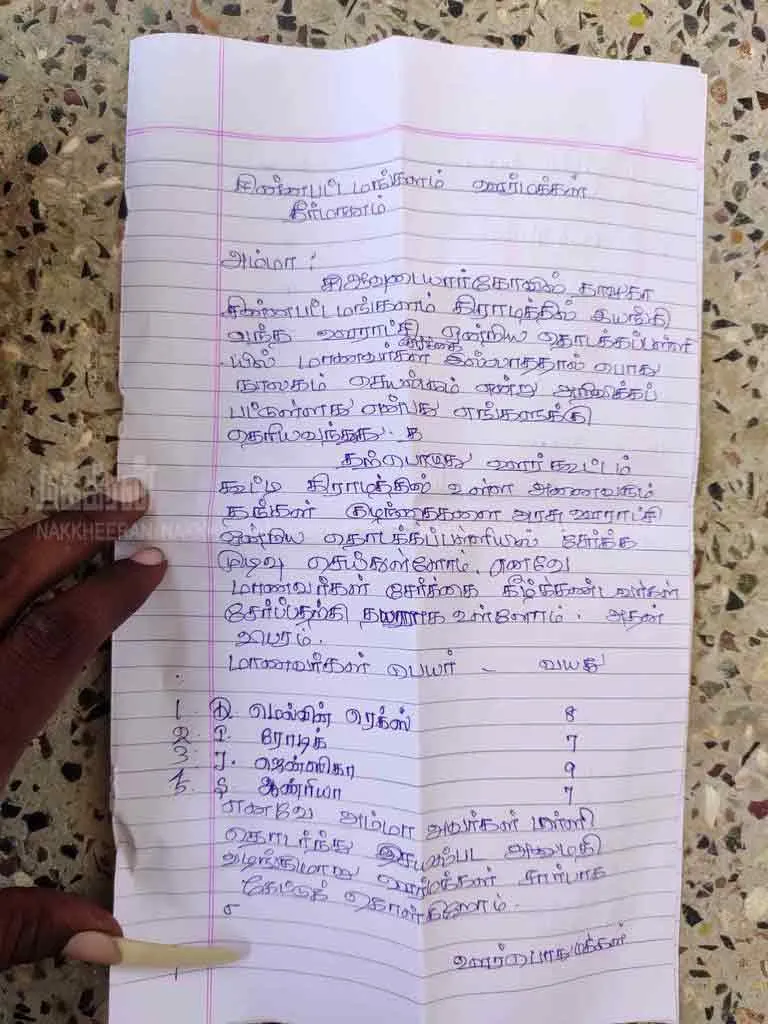 சின்னபட்டமங்களம் ஊர்மக்கள்
தீர்மானம்
அம்மா :
ஆவுடையார்கோவில் தாலுகா
சின்னபட்டமங்களம் கிராமத்தில் இயங்கி
வந்த ஊராட்சி ஒன்றிய தொடக்கப்பள்ளி
யில் மாணவர்கள் சேர்க்கை இல்லாததால் பொது
நூலகம் செயல்கும் என்று அறிவிக்கப்
பட்டுள்ளது என்பது எங்களுக்கு
தெரியவந்தது.
தற்பொழுது ஊர் கூட்டம்
கூட்டி கிராமத்தில் உள்ள அனைவரும்
தங்கள் குழந்தைகளை அரசு ஊராட்சி
ஒன்றிய தொடக்கப்பள்ளியில் சேர்க்க
முடிவு செய்துள்ளோம். எனவே
மாணவர்கள் சேர்க்கை கீழ்க்கண்டவர்கள்
சேர்ப்பதற்கு தயாராக உள்ளோம். அதன்
விபரம்.
மாணவர்கள் பெயர் - வயது
1. மெல்வின் ரெக்ஸ் 8
2. ரோடிக் 7
3. J. ஜென்ஸிகா 9
4. S. ஆன்ரியா 7
எனவே அம்மா அவர்கள் பள்ளி
தொடர்ந்து செயல்பட அனுமதி
வழங்குமாறு ஊர்மக்கள் சார்பாக
கேட்டுக் கொள்கிறோம்.
ஊர்பொதுமக்கள்
NAKKHEERAN